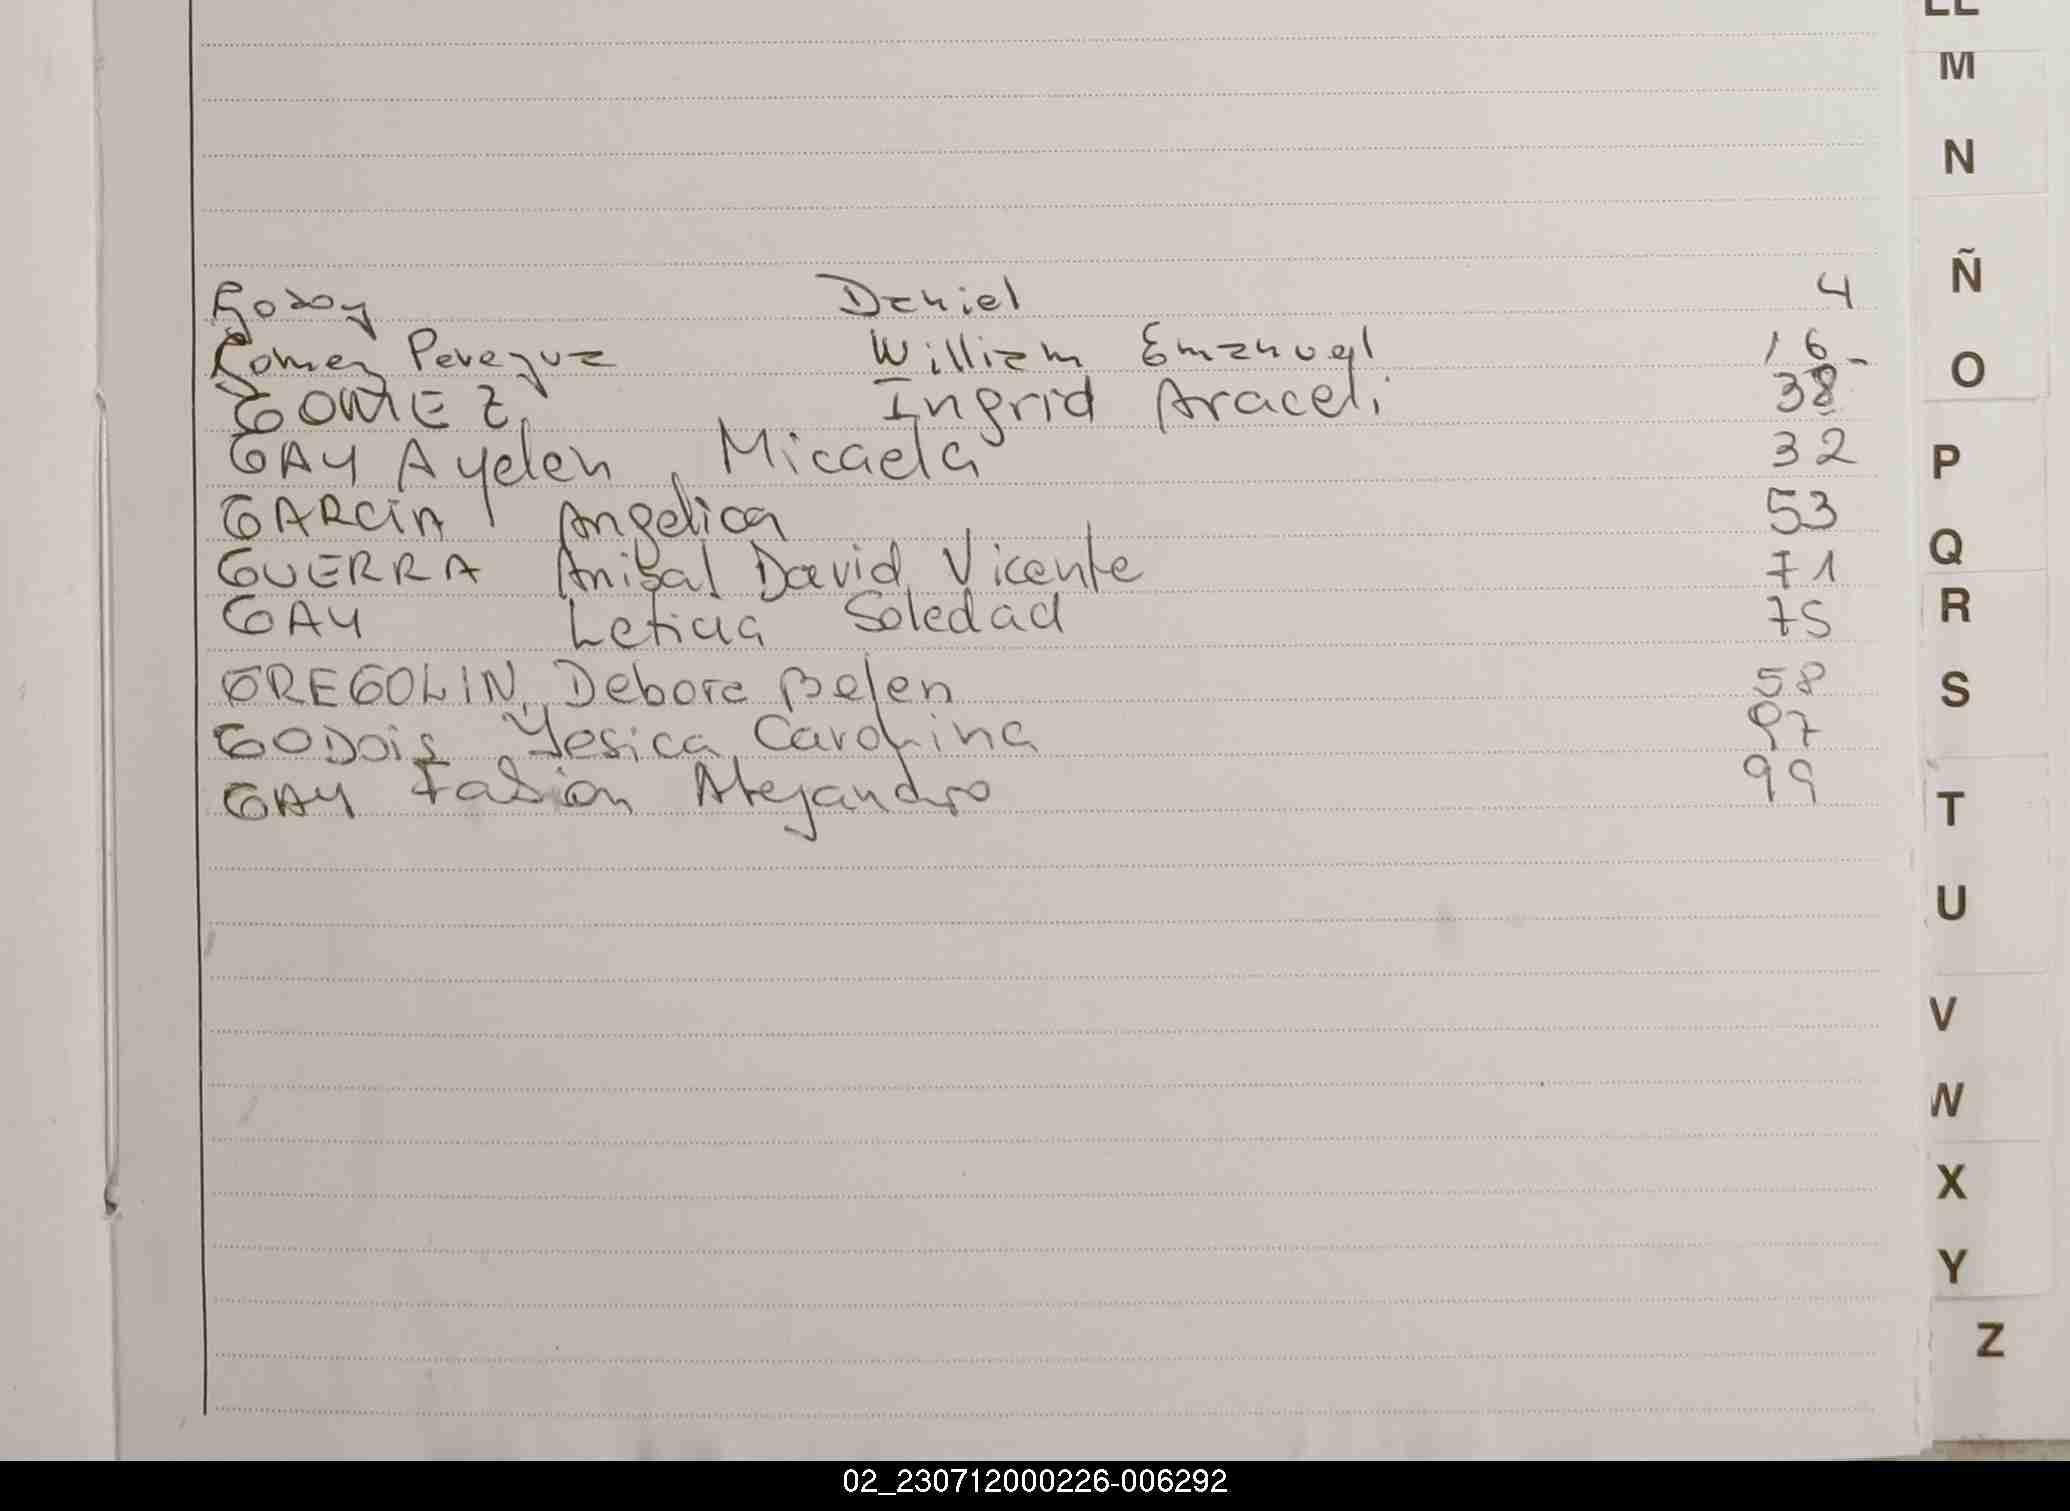 Godoy Daniel 4
Gomez Pereyra William Emanuel 16-
GOMEZ Ingrid Araceli 38
GAY Ayelen, Micaela 32
GARCIA Angelica 53
GUERRA Anibal David Vicente 71
GAY Leticia Soledad 75
GREGOLIN, Debora Belen 58
GODOis Yesica Carolina 97
GAY Fabian Alejandro 99
LL
M
N
Ñ
O
P
Q
R
S
T
U
V
W
X
Y
Z
02_230712000226-006292